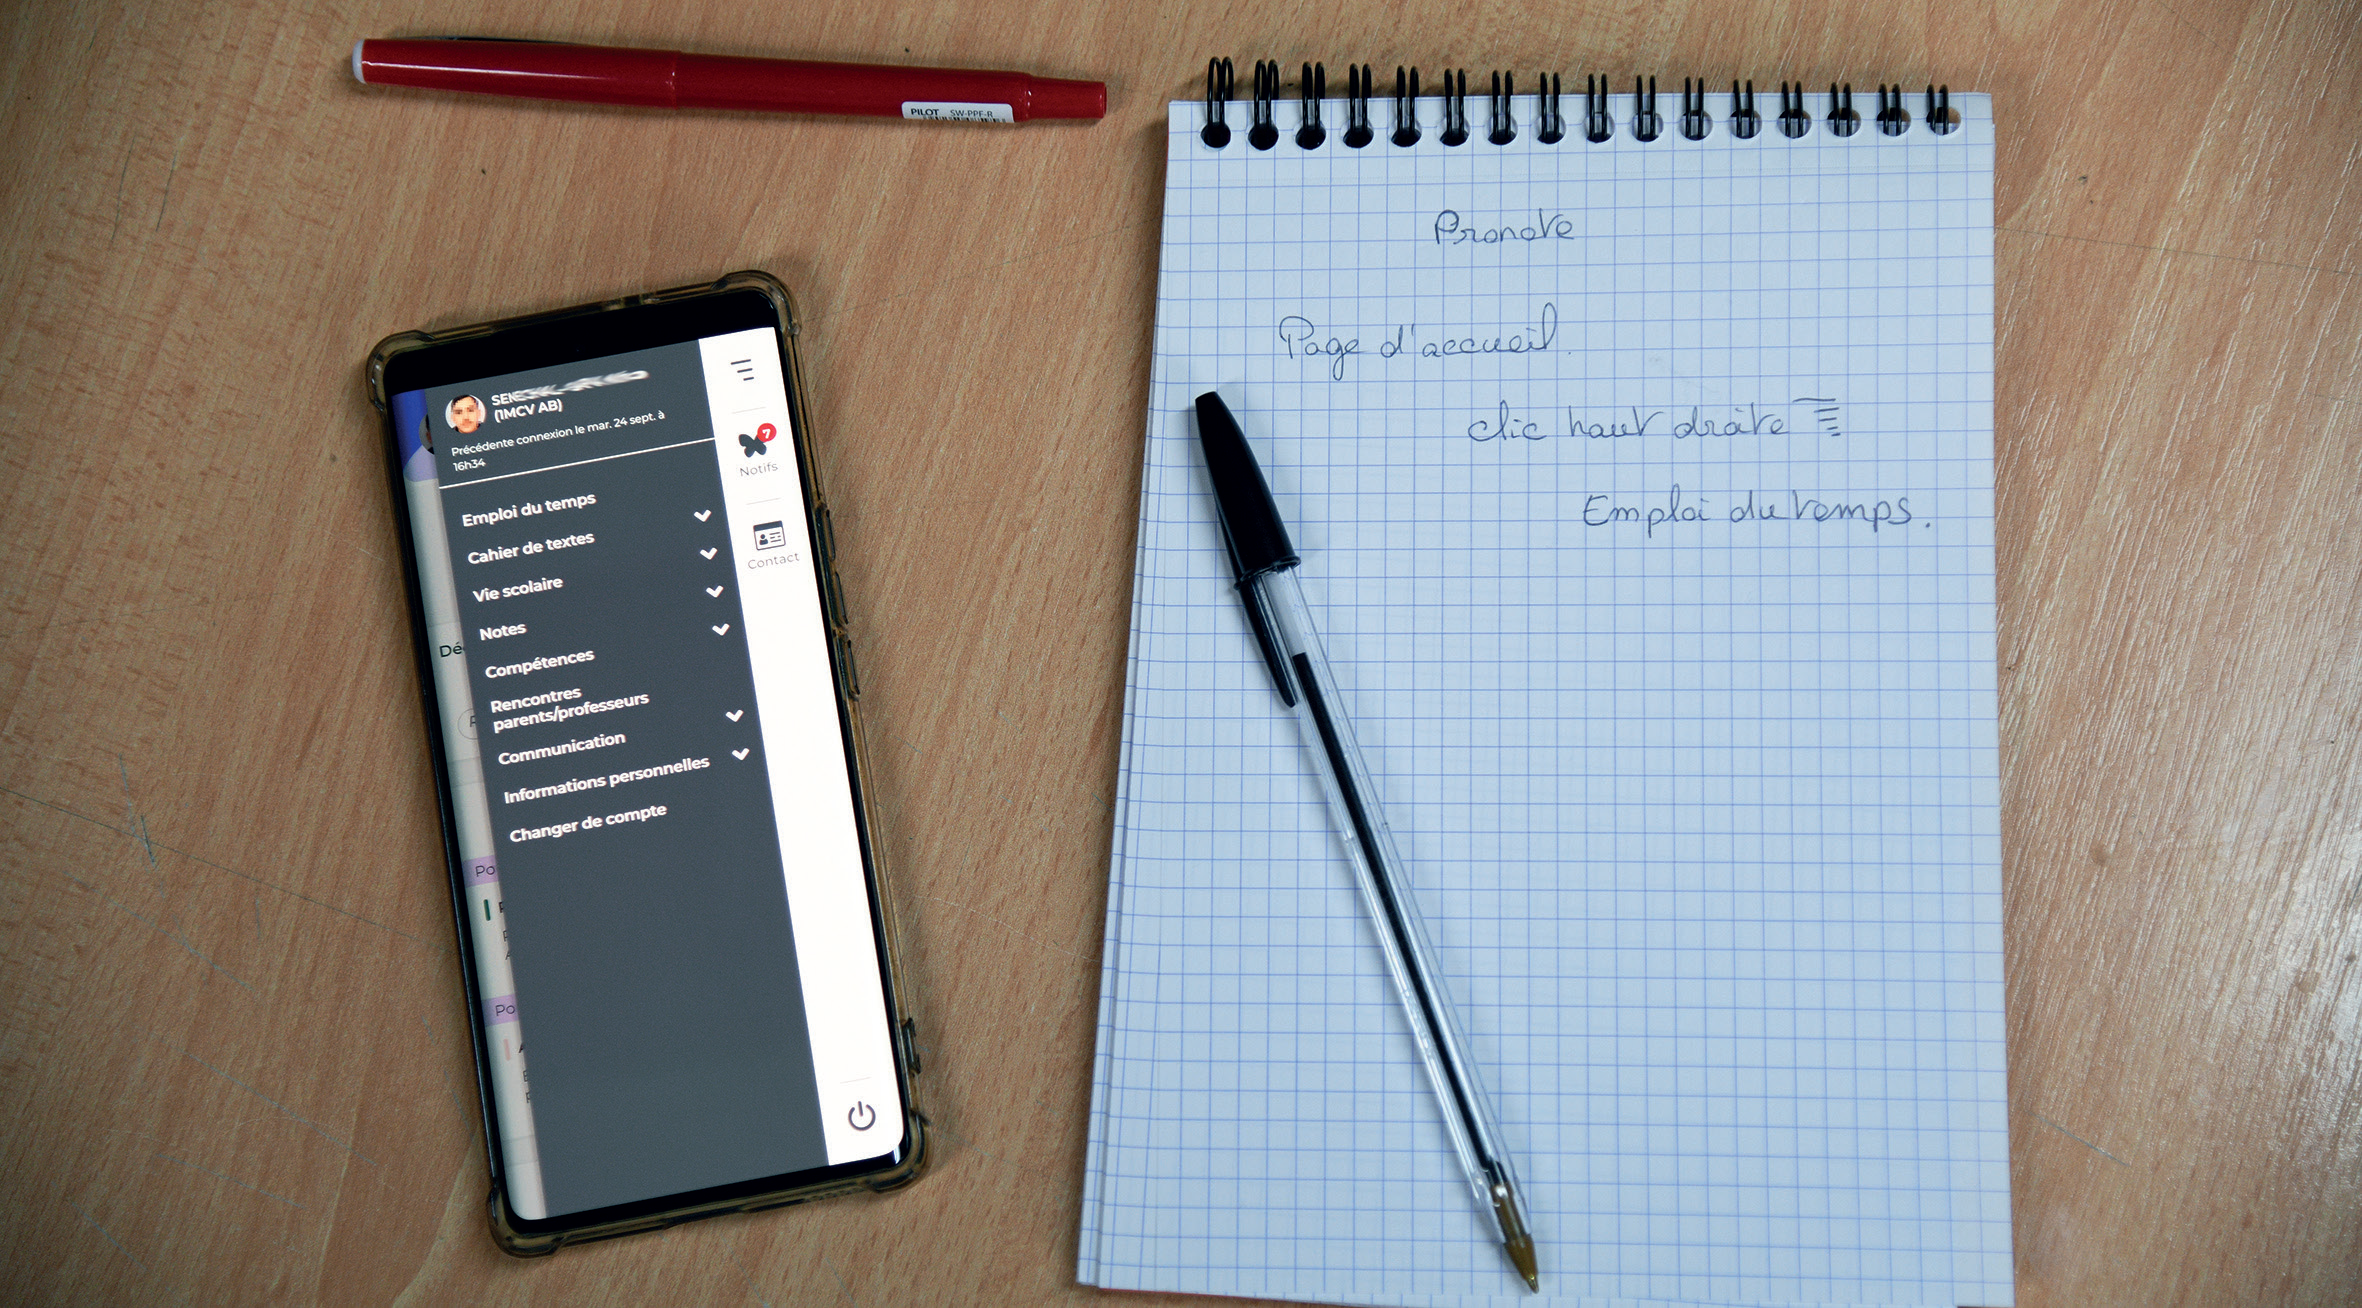 PILOT SW-PPF-R
(1MCV AB)
Précédente connexion le mar. 24 sept. à
16h34
Emploi du temps
Cahier de textes
Vie scolaire
Notes
Compétences
Rencontres
parents/professeurs
Communication
Informations personnelles
Changer de compte
7
Notifs
Contact
Dé
Po
Po
Pronote
Page d'accueil.
clic haut droite
Emploi du temps.